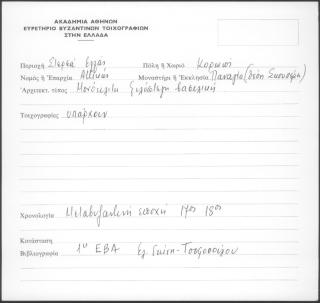 ΑΚΑΔΗΜΙΑ ΑΘΗΝΩΝ
ΕΥΡΕΤΗΡΙΟ ΒΥΖΑΝΤΙΝΩΝ ΤΟΙΧΟΓΡΑΦΙΩΝ
ΣΤΗΝ ΕΛΛΑΔΑ
Περιοχή Στερεά Ελλάς Πόλη ή Χωριό Κορωπί
Νομός ή Ἐπαρχία Αττικής Μοναστήρι ή Ἐκκλησία Παναγία (θέση
Ἀρχιτεκτ. τύπος Μονόκλιτη ξυλόστεγη βασιλική
Τοιχογραφίες υπάρχουν
Χρονολογία Μεταβυζαντινή εποχή 17ος 18ος
Κατάσταση
Βιβλιογραφία 1η ΕΒΑ Ελ. Γκίνη-Τσοφοπούλου